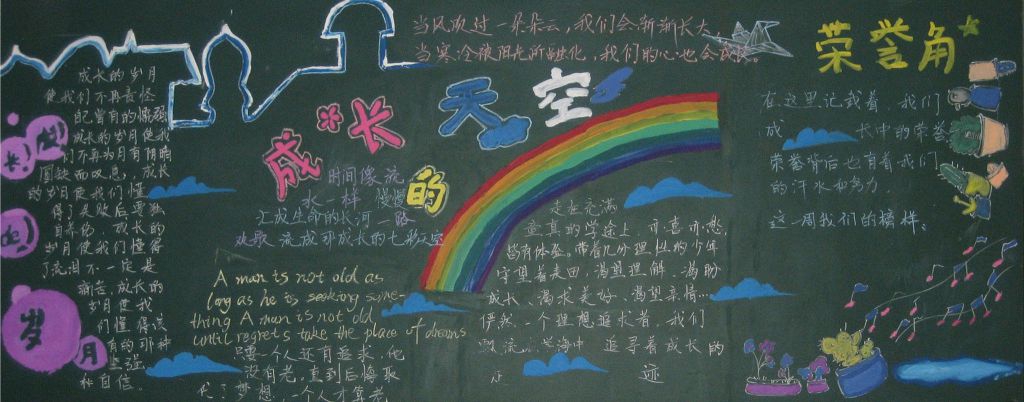 当风吹过一朵朵云,我们会渐渐长大
当寒冷被阳光所融化,我们的心也会
荣誉角
成长的天空
成长的岁月
成长的岁月
使我们不再责怪
自己曾有的懦弱
成长的岁月使我
们不再为月有阴晴
圆缺而叹息,成长
的岁月使我们懂
得了失败后要独
自养伤,成长的
岁月使我们懂得
了流泪不一定是
痛苦,成长的
岁月使我
们懂得没
有的那种
坚强
和自信。
时间像流
水一样 慢慢
汇成生命的长河 一路
欢歌 流成那成长的七彩天空
A man is not old as
long as he is seeking some-
thing A man is not old
until regrets take the place of dreams
只要一个人还有追求,他
没有老,直到后悔取
代了梦想,一个人才算老
走在充满
童真的学途上 亦喜亦愁
皆有体验。带着几分理性的少年
守望着麦田,渴望理解、满盼
成长、渴求美好、渴望亲情...
俨然一个理想追求着,我们
飘流 海中 追寻着成长的
足 迹
在这里记载着,我们
成 长中的荣誉
荣誉背后也有着我们
的汗水和努力.
这一周我们的榜样: